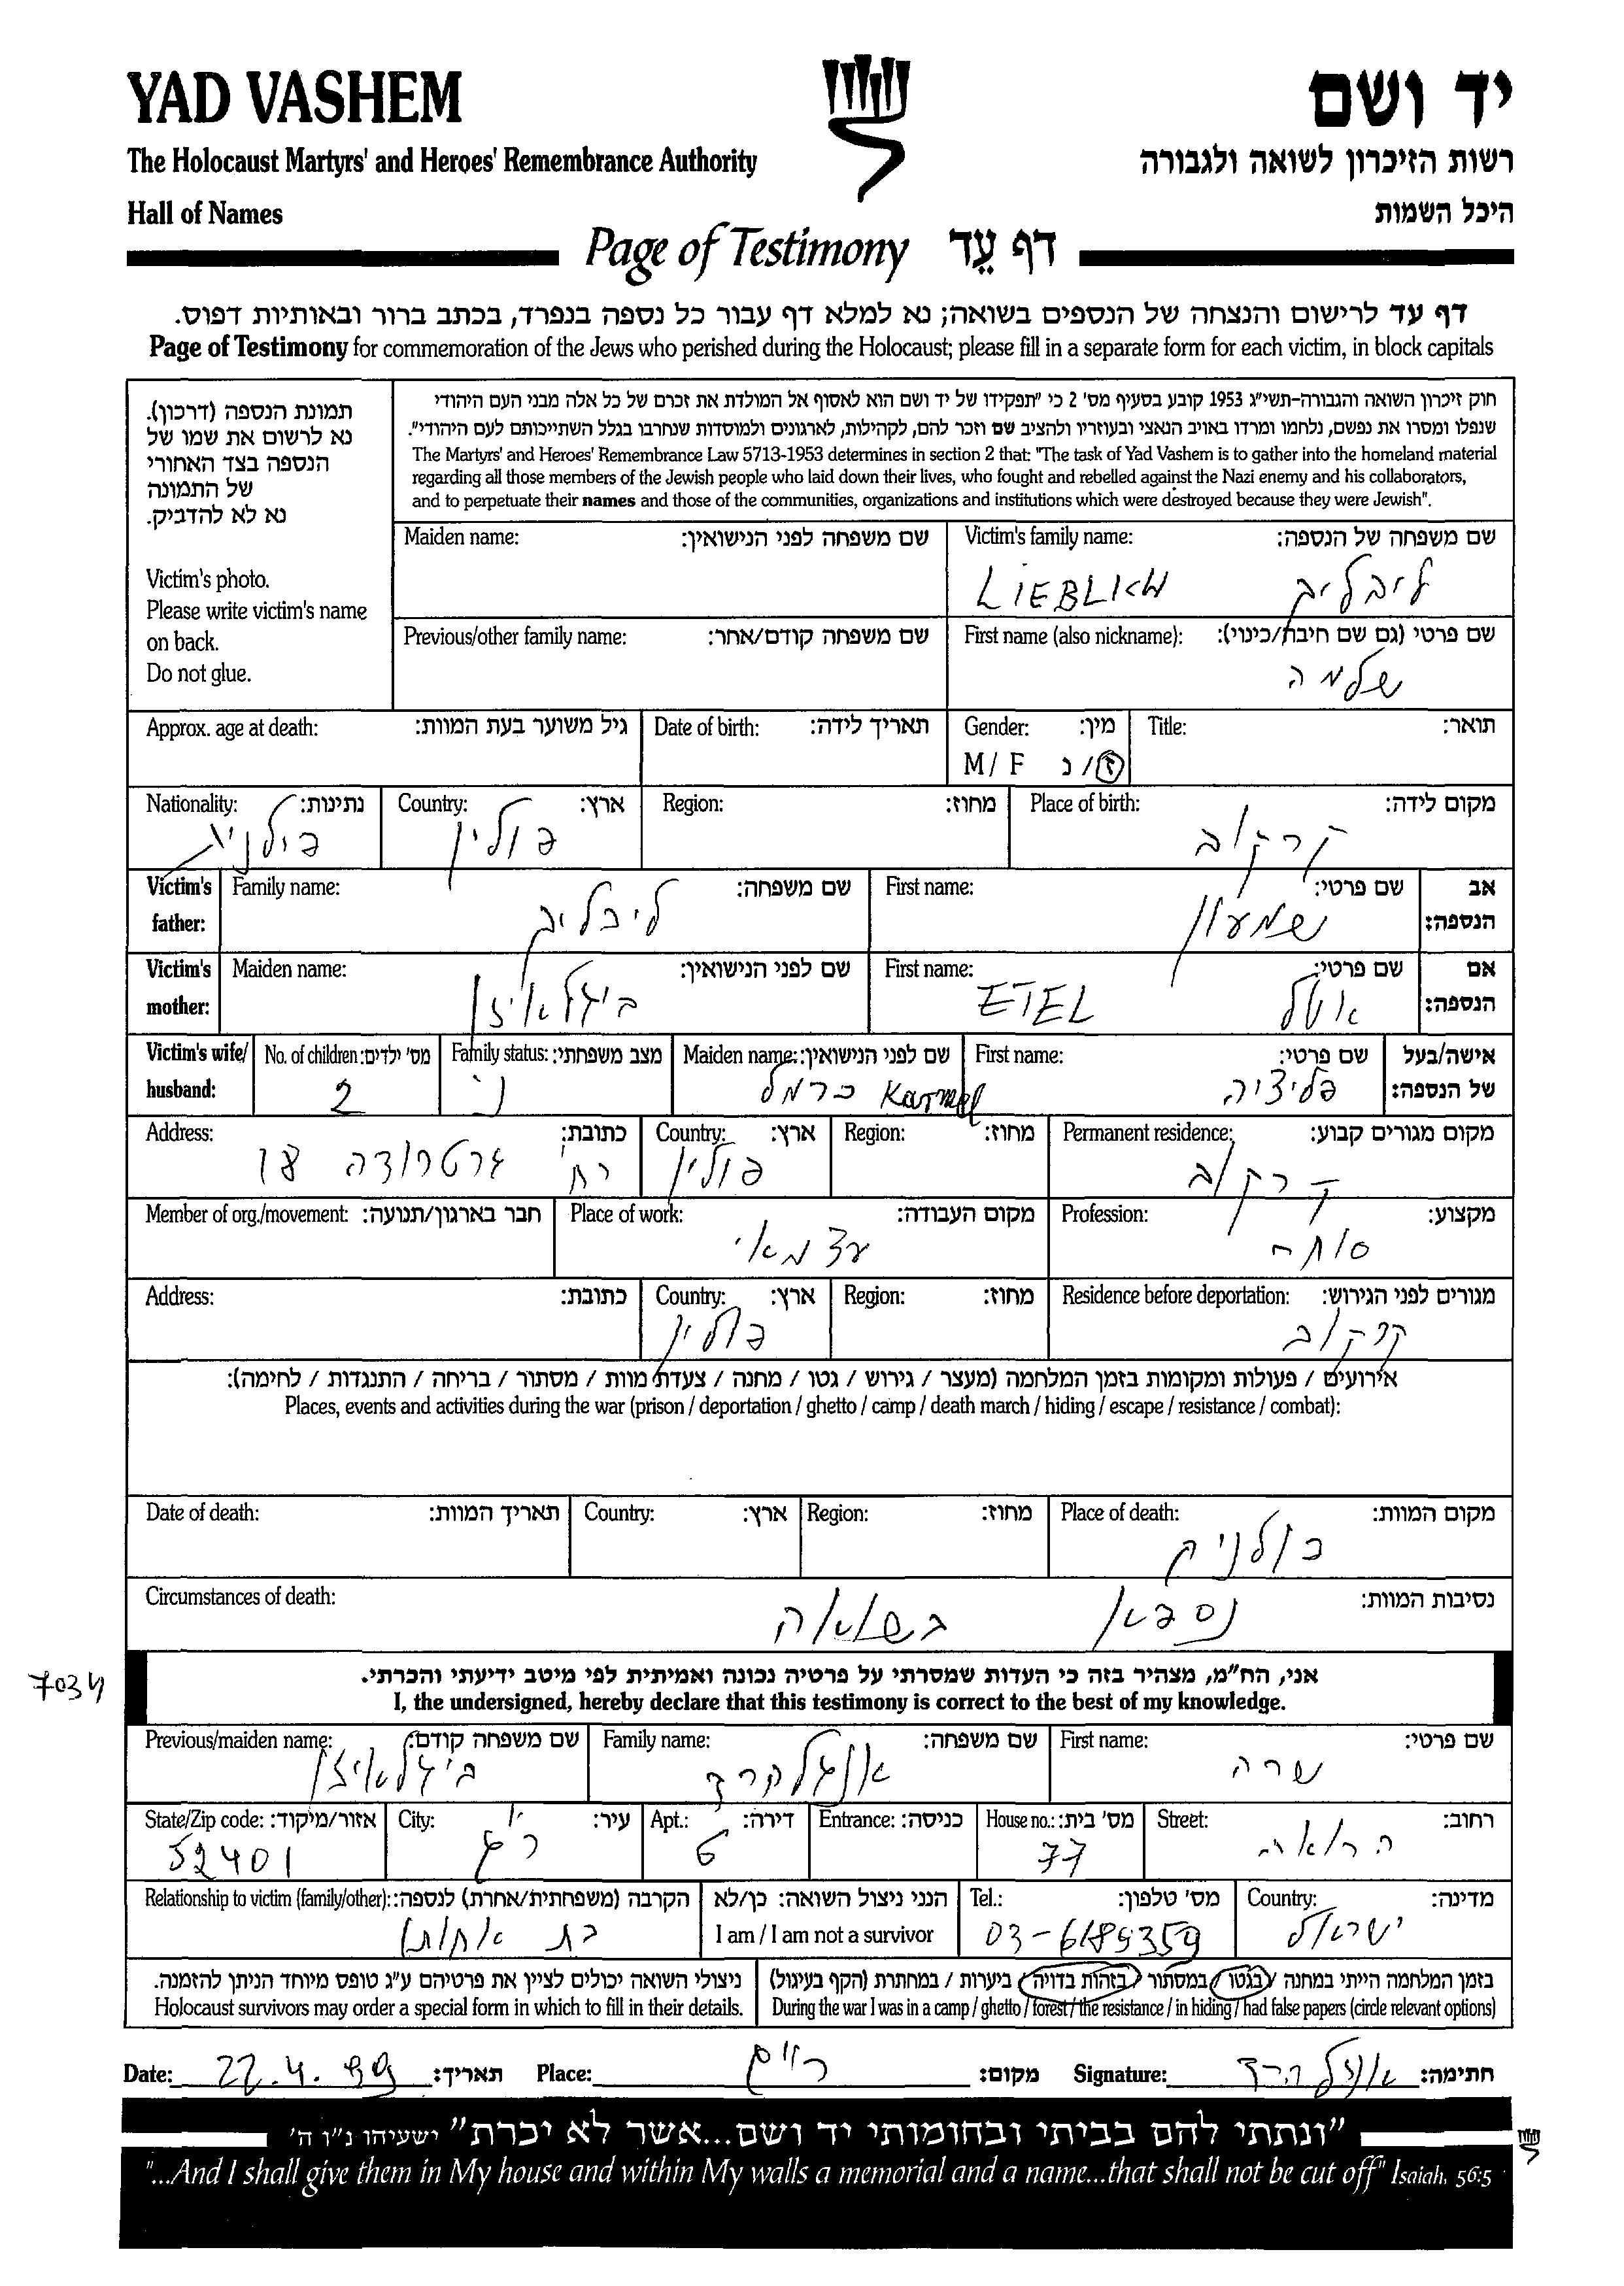 YAD VASHEM
יד ושם
The Holocaust Martyrs' and Heroes' Remembrance Authority
רשות הזיכרון לשואה ולגבורה
Hall of Names
היכל השמות
Page of Testimony דף עֵד
דף עד לרישום והנצחה של הנספים בשואה; נא למלא דף עבור כל נספה בנפרד, בכתב ברור ובאותיות דפוס.
Page of Testimony for commemoration of the Jews who perished during the Holocaust; please fill in a separate form for each victim, in block capitals
תמונת הנספה (דרכון).
נא לרשום את שמו של
הנספה בצד האחורי
של התמונה
נא לא להדביק.
Victim's photo.
Please write victim's name
on back.
Do not glue.
חוק זיכרון השואה והגבורה-תשי"ג 1953 קובע בסעיף מס' 2 כי "תפקידו של יד ושם הוא לאסוף אל המולדת את זכרם של כל אלה מבני העם היהודי
שנפלו ומסרו את נפשם, נלחמו ומרדו באויב הנאצי ובעוזריו ולהציב שם וזכר להם, לקהילות, לארגונים ולמוסדות שנחרבו בגלל השתייכותם לעם היהודי".
The Martyrs' and Heroes' Remembrance Law 5713-1953 determines in section 2 that: "The task of Yad Vashem is to gather into the homeland material
regarding all those members of the Jewish people who laid down their lives, who fought and rebelled against the Nazi enemy and his collaborators,
and to perpetuate their names and those of the communities, organizations and institutions which were destroyed because they were Jewish".
Victim's family name: שם משפחה של הנספה:
LIEBLICH ליבליך
Maiden name: שם משפחה לפני הנישואין:
First name (also nickname): שם פרטי (גם שם חיבה/כינוי):
שלמה
Previous/other family name: שם משפחה קודם/אחר:
Title: תואר:
Gender: מין:
M / F ז / נ
Date of birth: תאריך לידה:
Approx. age at death: גיל משוער בעת המוות:
Place of birth: מקום לידה:
קרקוב
Region: מחוז:
Country: ארץ:
פולין
Nationality: נתינות:
Victim's father: אב הנספה:
First name: שם פרטי:
שמעון
Family name: שם משפחה:
ליבליך
Victim's mother: אם הנספה:
First name: שם פרטי:
ETEL אטל
Maiden name: שם לפני הנישואין:
Victim's wife/ husband: אישה/בעל של הנספה:
First name: שם פרטי:
פליציה
Maiden name: שם לפני הנישואין:
כרמל Karmel
Family status: מצב משפחתי:
נ
No. of children: מס' ילדים:
2
Permanent residence: מקום מגורים קבוע:
קרקוב
Region: מחוז:
Country: ארץ:
פולין
Address: כתובת:
רח' גרטרודה 18
Profession: מקצוע:
סוחר
Place of work: מקום העבודה:
עצמאי
Member of org./movement: חבר בארגון/תנועה:
Residence before deportation: מגורים לפני הגירוש:
קרקוב
Region: מחוז:
Country: ארץ:
פולין
Address: כתובת:
אירועים / פעולות ומקומות בזמן המלחמה (מעצר / גירוש / גטו / מחנה / צעדת מוות / מסתור / בריחה / התנגדות / לחימה):
Places, events and activities during the war (prison / deportation / ghetto / camp / death march / hiding / escape / resistance / combat):
Place of death: מקום המוות:
Region: מחוז:
Country: ארץ:
Date of death: תאריך המוות:
Circumstances of death: נסיבות המוות:
נספו בשואה
7034
אני, הח"מ, מצהיר בזה כי העדות שמסרתי על פרטיה נכונה ואמיתית לפי מיטב ידיעתי והכרתי.
I, the undersigned, hereby declare that this testimony is correct to the best of my knowledge.
First name: שם פרטי:
שרה
Family name: שם משפחה:
אנגלקרד
Previous/maiden name: שם משפחה קודם:
Street: רחוב:
הרואה
House no.: מס' בית:
77
Entrance: כניסה:
Apt.: דירה:
6
City: עיר:
ר"ג
State/Zip code: אזור/מיקוד:
52401
Country: מדינה:
ישראל
Tel.: מס' טלפון:
03-6189359
הנני ניצול השואה: כן/לא
I am / I am not a survivor
Relationship to victim (family/other): הקרבה (משפחתית/אחרת) לנספה:
בת אחותו
בזמן המלחמה הייתי במחנה / בגטו / במסתור / בזהות בדויה / ביערות / במחתרת (הקף בעיגול)
During the war I was in a camp / ghetto / forest / the resistance / in hiding / had false papers (circle relevant options)
ניצולי השואה יכולים לציין את פרטיהם ע"ג טופס מיוחד הניתן להזמנה.
Holocaust survivors may order a special form in which to fill in their details.
Date: 22.4.99 תאריך: Place: מקום: Signature: אנגלקרד חתימה:
"ונתתי להם בביתי ובחומותי יד ושם...אשר לא יכרת" ישעיהו נ"ו ה'
"...And I shall give them in My house and within My walls a memorial and a name...that shall not be cut off" Isaiah, 56:5